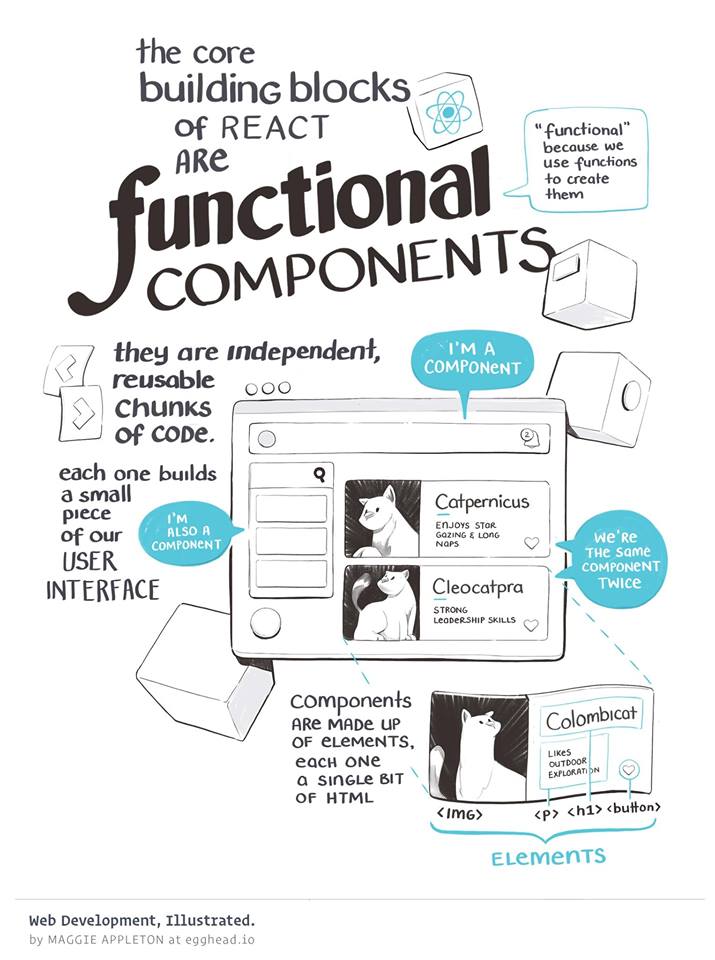 the core
building blocks
of REACT
ARE
functional
COMPONENTS
"functional"
because we
use functions
to create
them
they are independent,
reusable
chunks
of code.
each one builds
a small
piece
of our
USER
INTERFACE
I'M A
COMPONENT
2
I'M
ALSO A
COMPONENT
Catpernicus
ENJOYS STAR
GAZING & LONG
NAPS
WE'RE
THE SAME
COMPONENT
TWICE
Cleocatpra
STRONG
LEADERSHIP SKILLS
Components
ARE MADE UP
OF ELEMENTS,
EACH ONE
A SINGLE BIT
OF HTML
Colombicat
LIKES
OUTDOOR
EXPLORATION
<IMG> <P> <h1> <button>
ELEMENTS
Web Development, Illustrated.
by MAGGIE APPLETON at egghead.io